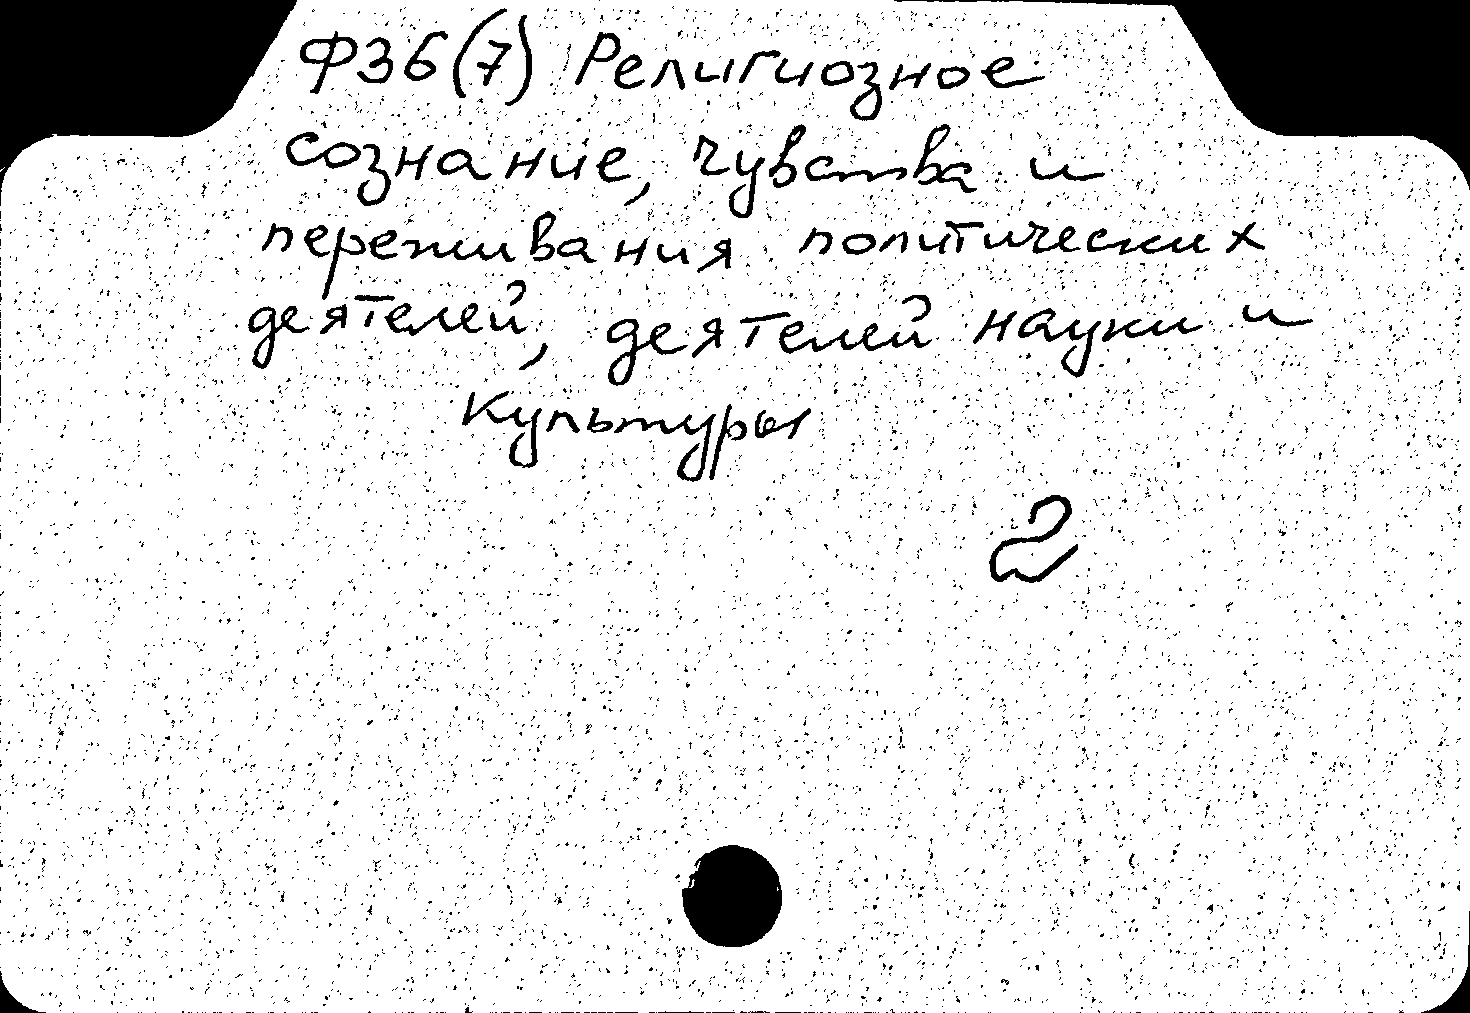 Ф36(7) Религиозное
сознание, чувства и
переживания политических
деятелей, деятелей науки и
культуры
2